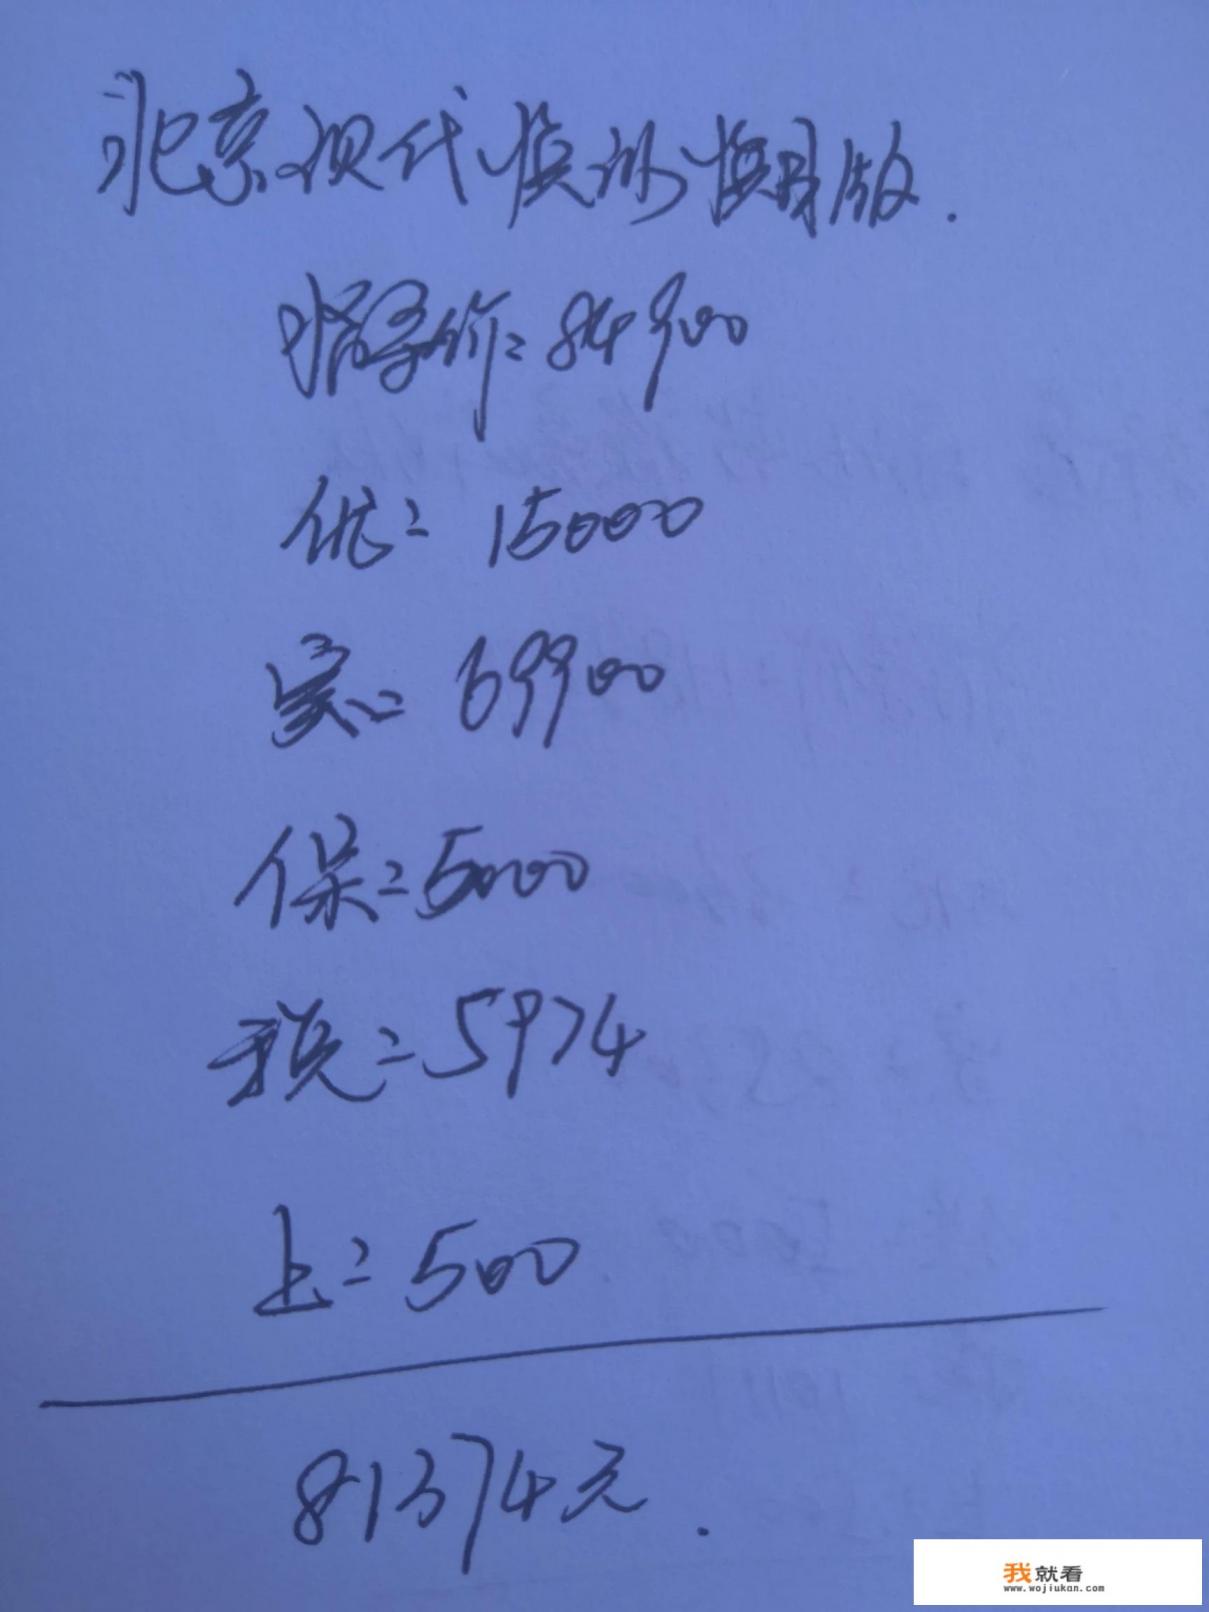 北京现代悦纳悦目版.
指导价=84900
优=15000
实=69900
保=5000
税=5974
上=500
81374元.
我就看
www.wojiukan.com